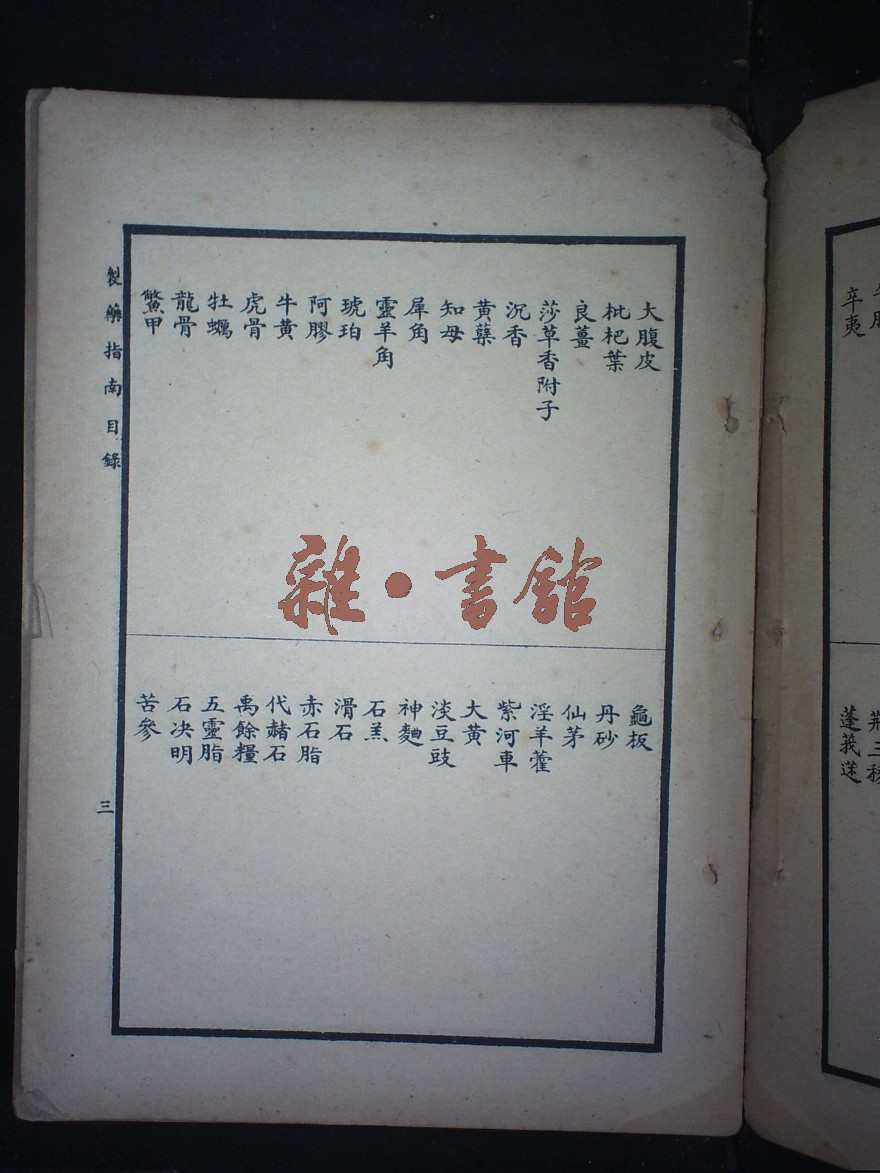 大腹皮
枇杷葉
良薑
莎草香附子
沉香
黃蘗
知母
犀角
靈羊角
琥珀
阿膠
牛黃
虎骨
牡蠣
龍骨
鱉甲
龜板
丹砂
仙茅
淫羊藿
紫河車
大黃
淡豆豉
神麯
石羔
滑石
赤石脂
代赭石
禹餘糧
五靈脂
石决明
苦參
製藥指南目錄
三
雜·書館
辛夷
荆三稜
蓬莪莲